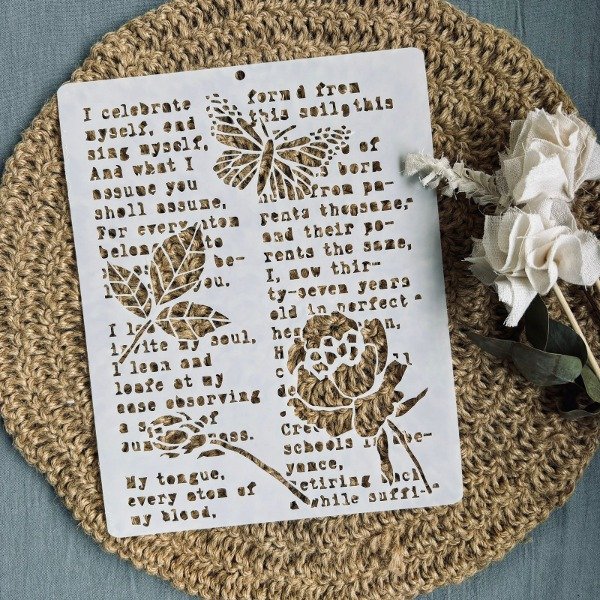 I celebrate
myself, and
sing myself,
And what I
assume you
shall assume,
For every atom
be-
you.
I
my soul,
I lean and
loafe at my
ease observing
a of
My tongue,
every atom of
my blood,
form'd from
this soil, this
of
born
from pa-
rents the same,
and their pa-
rents the same,
I, now thir-
ty-seven years
old in perfect
schools in abe-
yance,
retiring back
while suffi-